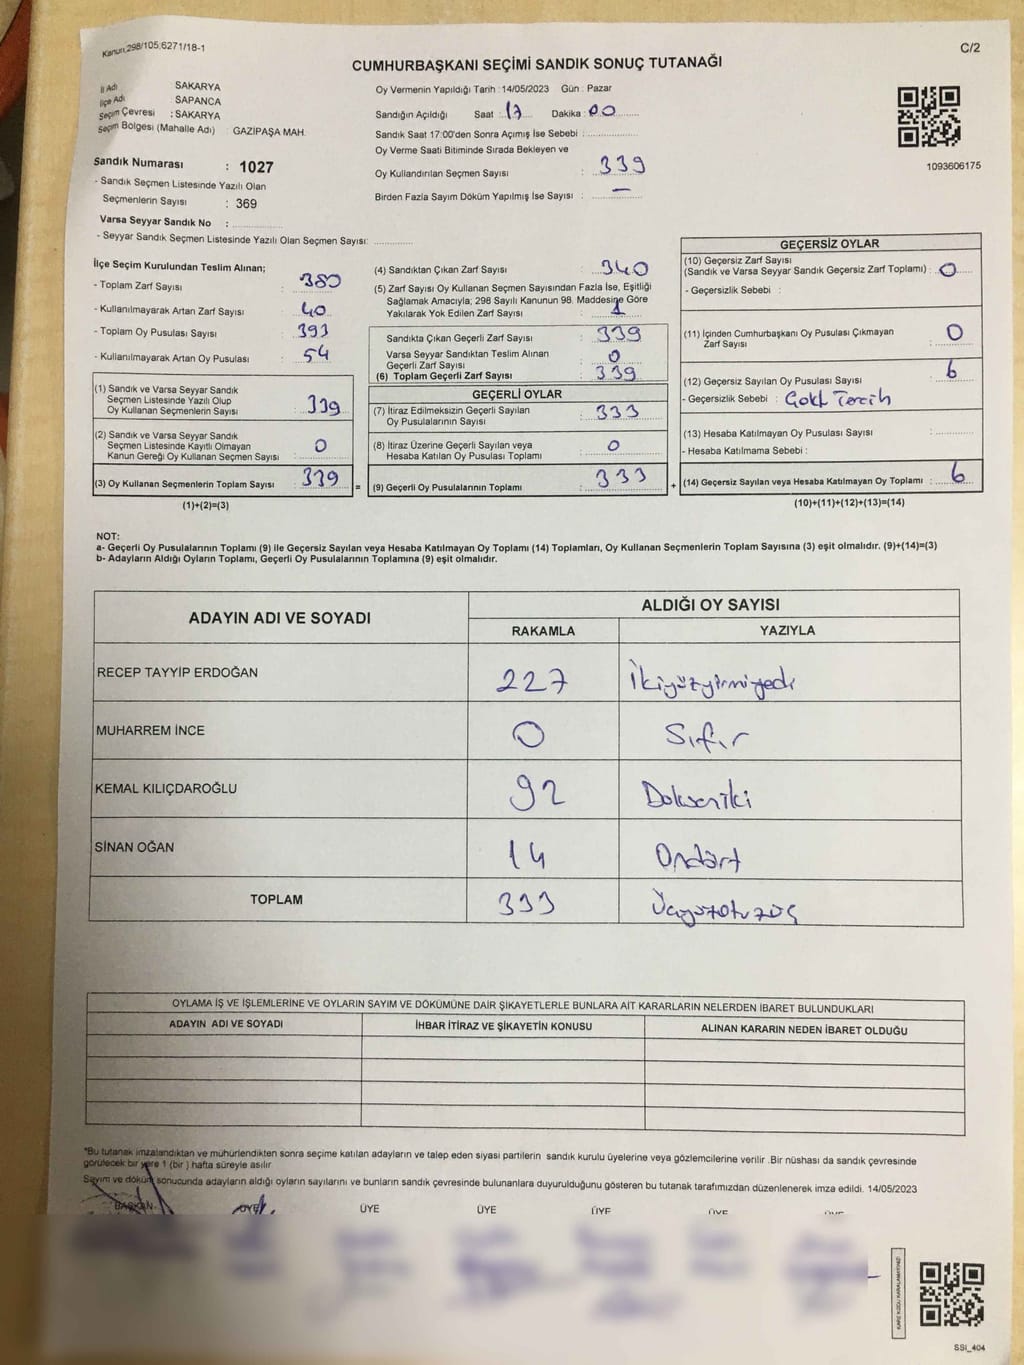 Kanun.298/105.6271/18-1
C/2
CUMHURBAŞKANI SEÇİMİ SANDIK SONUÇ TUTANAĞI
İl Adı SAKARYA
İlçe Adı : SAPANCA
Seçim Çevresi : SAKARYA
Seçim Bölgesi (Mahalle Adı) : GAZİPAŞA MAH.
Sandık Numarası : 1027
- Sandık Seçmen Listesinde Yazılı Olan
Seçmenlerin Sayısı : 369
Varsa Seyyar Sandık No :
- Seyyar Sandık Seçmen Listesinde Yazılı Olan Seçmen Sayısı:
Oy Vermenin Yapıldığı Tarih : 14/05/2023 Gün : Pazar
Sandığın Açıldığı Saat : 17 Dakika : 00
Sandık Saat 17:00'den Sonra Açımış İse Sebebi :
Oy Verme Saati Bitiminde Sırada Bekleyen ve
Oy Kullandırılan Seçmen Sayısı : 339
Birden Fazla Sayım Döküm Yapılmış İse Sayısı : —
1093606175
İlçe Seçim Kurulundan Teslim Alınan;
- Toplam Zarf Sayısı : 380
- Kullanılmayarak Artan Zarf Sayısı : 40
- Toplam Oy Pusulası Sayısı : 393
- Kullanılmayarak Artan Oy Pusulası : 54
(1) Sandık ve Varsa Seyyar Sandık
Seçmen Listesinde Yazılı Olup
Oy Kullanan Seçmenlerin Sayısı : 339
(2) Sandık ve Varsa Seyyar Sandık
Seçmen Listesinde Kayıtlı Olmayan
Kanun Gereği Oy Kullanan Seçmen Sayısı : 0
(3) Oy Kullanan Seçmenlerin Toplam Sayısı : 339 =
(1)+(2)=(3)
(4) Sandıktan Çıkan Zarf Sayısı : 340
(5) Zarf Sayısı Oy Kullanan Seçmen Sayısından Fazla İse, Eşitliği
Sağlamak Amacıyla; 298 Sayılı Kanunun 98. Maddesine Göre
Yakılarak Yok Edilen Zarf Sayısı : 1
Sandıkta Çıkan Geçerli Zarf Sayısı : 339
Varsa Seyyar Sandıktan Teslim Alınan
Geçerli Zarf Sayısı : 0
(6) Toplam Geçerli Zarf Sayısı : 339
GEÇERLİ OYLAR
(7) İtiraz Edilmeksizin Geçerli Sayılan
Oy Pusulalarının Sayısı : 333
(8) İtiraz Üzerine Geçerli Sayılan veya
Hesaba Katılan Oy Pusulası Toplamı : 0
(9) Geçerli Oy Pusulalarının Toplamı : 333 +
GEÇERSİZ OYLAR
(10) Geçersiz Zarf Sayısı
(Sandık ve Varsa Seyyar Sandık Geçersiz Zarf Toplamı) : 0
- Geçersizlik Sebebi :
(11) İçinden Cumhurbaşkanı Oy Pusulası Çıkmayan
Zarf Sayısı : 0
(12) Geçersiz Sayılan Oy Pusulası Sayısı : 6
- Geçersizlik Sebebi : Çoklu Tercih
(13) Hesaba Katılmayan Oy Pusulası Sayısı :
- Hesaba Katılmama Sebebi :
(14) Geçersiz Sayılan veya Hesaba Katılmayan Oy Toplamı : 6
(10)+(11)+(12)+(13)=(14)
NOT:
a- Geçerli Oy Pusulalarının Toplamı (9) ile Geçersiz Sayılan veya Hesaba Katılmayan Oy Toplamı (14) Toplamları, Oy Kullanan Seçmenlerin Toplam Sayısına (3) eşit olmalıdır. (9)+(14)=(3)
b- Adayların Aldığı Oyların Toplamı, Geçerli Oy Pusulalarının Toplamına (9) eşit olmalıdır.
ADAYIN ADI VE SOYADI
ALDIĞI OY SAYISI
RAKAMLA YAZIYLA
RECEP TAYYİP ERDOĞAN 227 İkiyüzyirmiyedi
MUHARREM İNCE 0 Sıfır
KEMAL KILIÇDAROĞLU 92 Doksaniki
SİNAN OĞAN 14 Ondört
TOPLAM 333 Üçyüzotuzüç
OYLAMA İŞ VE İŞLEMLERİNE VE OYLARIN SAYIM VE DÖKÜMÜNE DAİR ŞİKAYETLERLE BUNLARA AİT KARARLARIN NELERDEN İBARET BULUNDUKLARI
ADAYIN ADI VE SOYADI İHBAR İTİRAZ VE ŞİKAYETİN KONUSU ALINAN KARARIN NEDEN İBARET OLDUĞU
*Bu tutanak imzalandıktan ve mühürlendikten sonra seçime katılan adayların ve talep eden siyasi partilerin sandık kurulu üyelerine veya gözlemcilerine verilir .Bir nüshası da sandık çevresinde
görülecek bir yere 1 (bir ) hafta süreyle asılır
Sayım ve döküm sonucunda adayların aldığı oyların sayılarını ve bunların sandık çevresinde bulunanlara duyurulduğunu gösteren bu tutanak tarafımızdan düzenlenerek imza edildi. 14/05/2023
BAŞKAN ÜYE ÜYE ÜYE ÜYE ÜYE
SSI_404